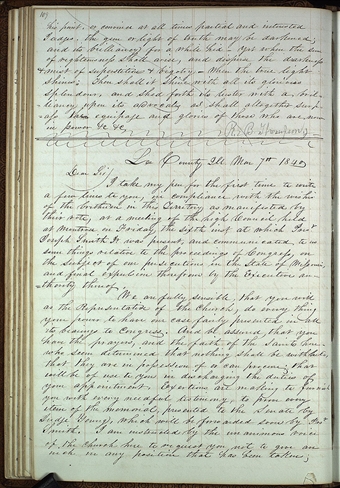 his power, or ermine at all times partial and interested
Judges, the gem or light of truth may be darkened,
and its brilliancy for a while hid - yet when the sun
of righteousness shall arise, and disperse the darkness
& mist of superstition & bigotry - When the true light
shines; then shall it shine with all its glorious
splendour, and shed forth its luster with a bril-
liancy upon its advocates as shall altogether
equipage and glories of those who are now
in power &c &c,
R. B. Thompson
Lee County Ill Mar 7th 1840
Dear Sir,
I take my pen for the first time to write
a few lines to you, in compliance with the wishes
of the brethren in this Territory as manifested by
their vote, at a meeting of the high Council held
at Montrose on Friday, the sixth inst at which Prest
Joseph Smith Jr was present, and communicated to us
some things relative to the proceedings of Congress, on
the subject of our persecutions in the State of Missouri,
and final expulsion therefrom by the Executive au-
thority thereof.
We are fully sensible, that you will
as the Representative of the Church, do every thing in
your power to have our case fairly presented in all
its bearings to Congress. And be assured, that you
have the prayers, and the faith of the Saints here,
who seem determined that nothing shall be withheld,
that they are in possession of or can procure, that
will be of use to you in discharging the duties of
your appointment. Exertions are making to furnish
you with every needful testimony, to prove every
item of the memorial, presented to the Senate by
Judge Young, which will be forwarded soon by Prest
Smith. I am instructed by the unanimous voice
of the Church here to request you not to give an
inch in any position that has been taken,